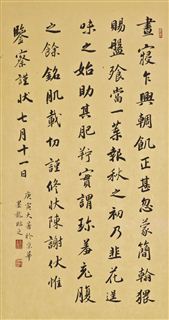 晝寢乍興輖飢正甚忽蒙簡翰猥
賜盤飧當一葉報秋之初乃韭花逞
味之始助其肥羜實謂珍羞充腹
之餘銘肌載切謹修狀陳謝伏惟
鑒察謹狀七月十一日
庚寅大暑於京華